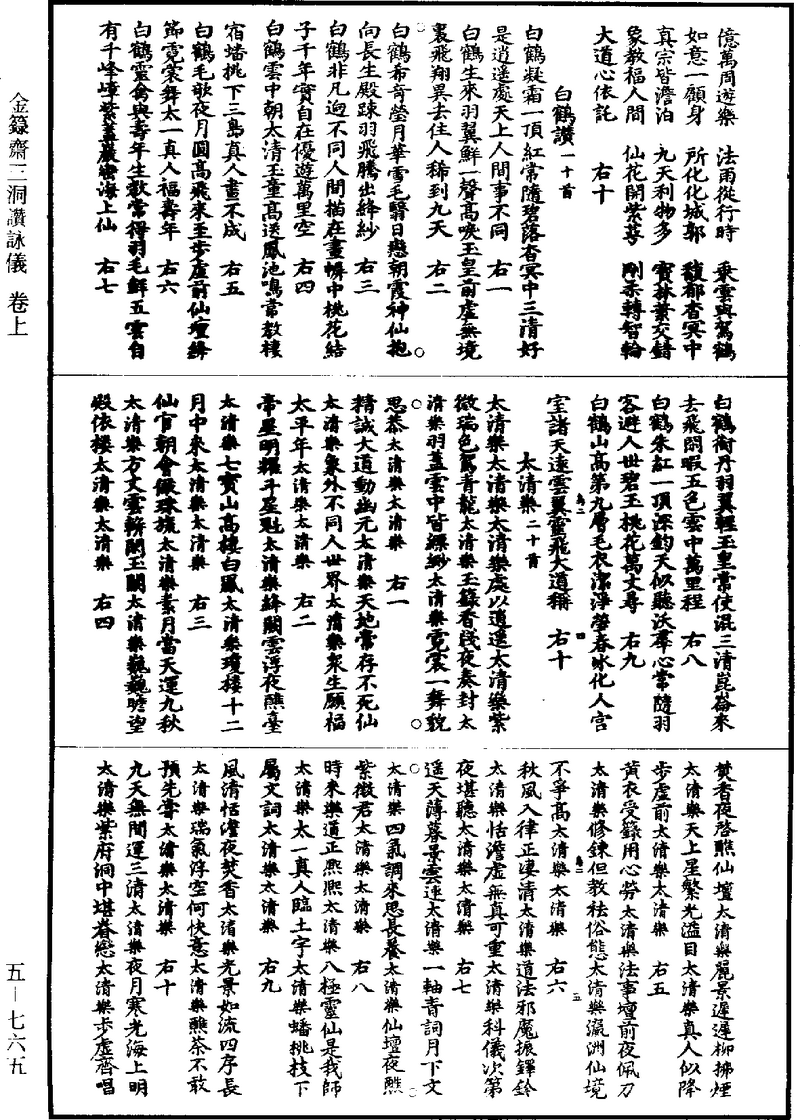 億萬周遊樂　法雨從行時　乘雲與駕鶴
如意一願身　所化化城郭　馥郁杳冥中
真宗皆澹泊　九天利物多　寳林葉交錯
象教福人間　仙花開紫萼　剛柔轉智輪
大道心依託　　右十
白鶴讚一十首
白鶴凝霜一頂紅常隨碧落杳冥中三清好
是逍遥處天上人間事不同　右一
白鶴生來羽翼鮮一聲高唳玉皇前虛無境
裏飛翔異去住人稀到九天　右二
白鶴希奇瑩月華雪毛翳日戀朝霞神仙抱
向長生殿踈羽飛騰出絳紗　右三
白鶴非凡迥不同人間描在畫幈中桃花結
子千年實自在優遊萬里空　右四
白鶴雲中朝太清玉童高送鳳池鳴常教棲
宿蟠桃下三島真人畫不成　右五
白鶴毛歌夜月圓高飛來至步虛前仙壇絳
節霓裳舞太一真人福壽年　右六
白鶴靈禽與壽年生教常得羽毛鮮五雲自
有千峰嶂紫蓋巖密海上仙　右七
白鶴衘丹羽翼輕玉皇常使混三清崑崙來
去飛閑暇五色雲中萬里程　右八
白鶴朱紅一頂深鈞天似聽沃羣心常隨羽
客遊人世碧玉桃花萬丈尋　右九
白鶴山高第九層毛衣潔淨瑩春冰化人宫
室諸天遠雲翼靈飛大道稱　右十
太清樂二十首
太清樂太清樂太清樂處以逍遥太清樂紫
微瑞色駕青龍太清樂玉籙香殘夜奏封太
清樂羽蓋雲中皆縹緲太清樂霓裳一舞貌
思恭太清樂太清樂　右一
精誠大道動幽元太清樂天地常存不死仙
太清樂象外不同人世界太清樂衆生願福
太平年太清樂太清樂　右二
帝星明耀斗星魁太清樂絳闕雲浮夜醮臺
太清樂七寳山高棲白鳳太清樂瓊樓十二
月中來太清樂太清樂　右三
仙官朝會儼珠璣太清樂素月當天運九秋
太清樂方丈雲軿開玉闕太清樂巍巍瞻望
殿依樓太清樂太清樂　右四
焚香夜啓醮仙壇太清樂麗景遲遲柳拂煙
太清樂天上星繁光溢目太清樂真人似降
步虛前太清樂太清樂　右五
黄衣受籙用心勞太清樂法事壇前夜佩刀
太清樂修鍊但教袪俗態太清樂瀛洲仙境
不爭高太清樂太清樂　右六
秋風入律正凄清太清樂道法邪魔振鐸鈴
太清樂恬澹虛無真可重太清樂科儀次第
夜堪聽太清樂太清樂　右七
遥天薄暮景雲連太清樂一軸青詞月下文
太清樂四氣調來思長養太清樂仙壇夜醮
紫微君太清樂太清樂　右八
時來樂道正熙熙太清樂八極靈仙是我師
太清樂太一真人臨土宇太清樂蟠桃技下
屬文詞太清樂太清樂　右九
風清恬澹夜焚香太清樂光景如流四序長
太清樂瑞氣浮空何快意太清樂醮茶不敢
預先嘗太清樂太清樂　右十
九天無間運三清太清樂夜月寒光海上明
太清樂紫府洞中堪眷戀太清樂步虛齊唱
金籙齋三洞讚詠儀　卷上
五－七六九